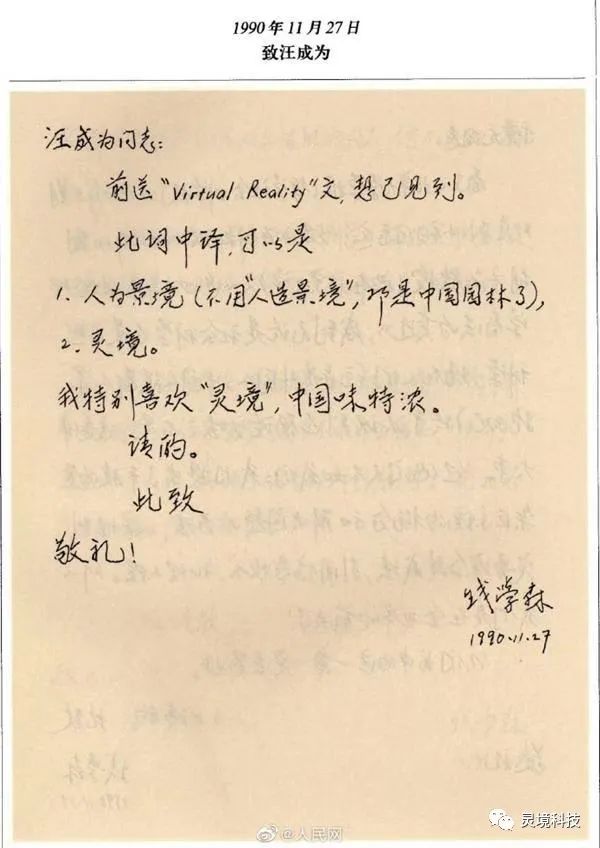 1990年11月27日
致汪成为
汪成为同志:
前送“Virtual Reality”文,想已见到。
此词中译,可以是
1. 人为景境(不用“人造景境”,那是中国园林了),
2. 灵境。
我特别喜欢“灵境”,中国味特浓。
请酌。
此致
敬礼!
钱学森
1990.11.27
@人民网
灵境科技